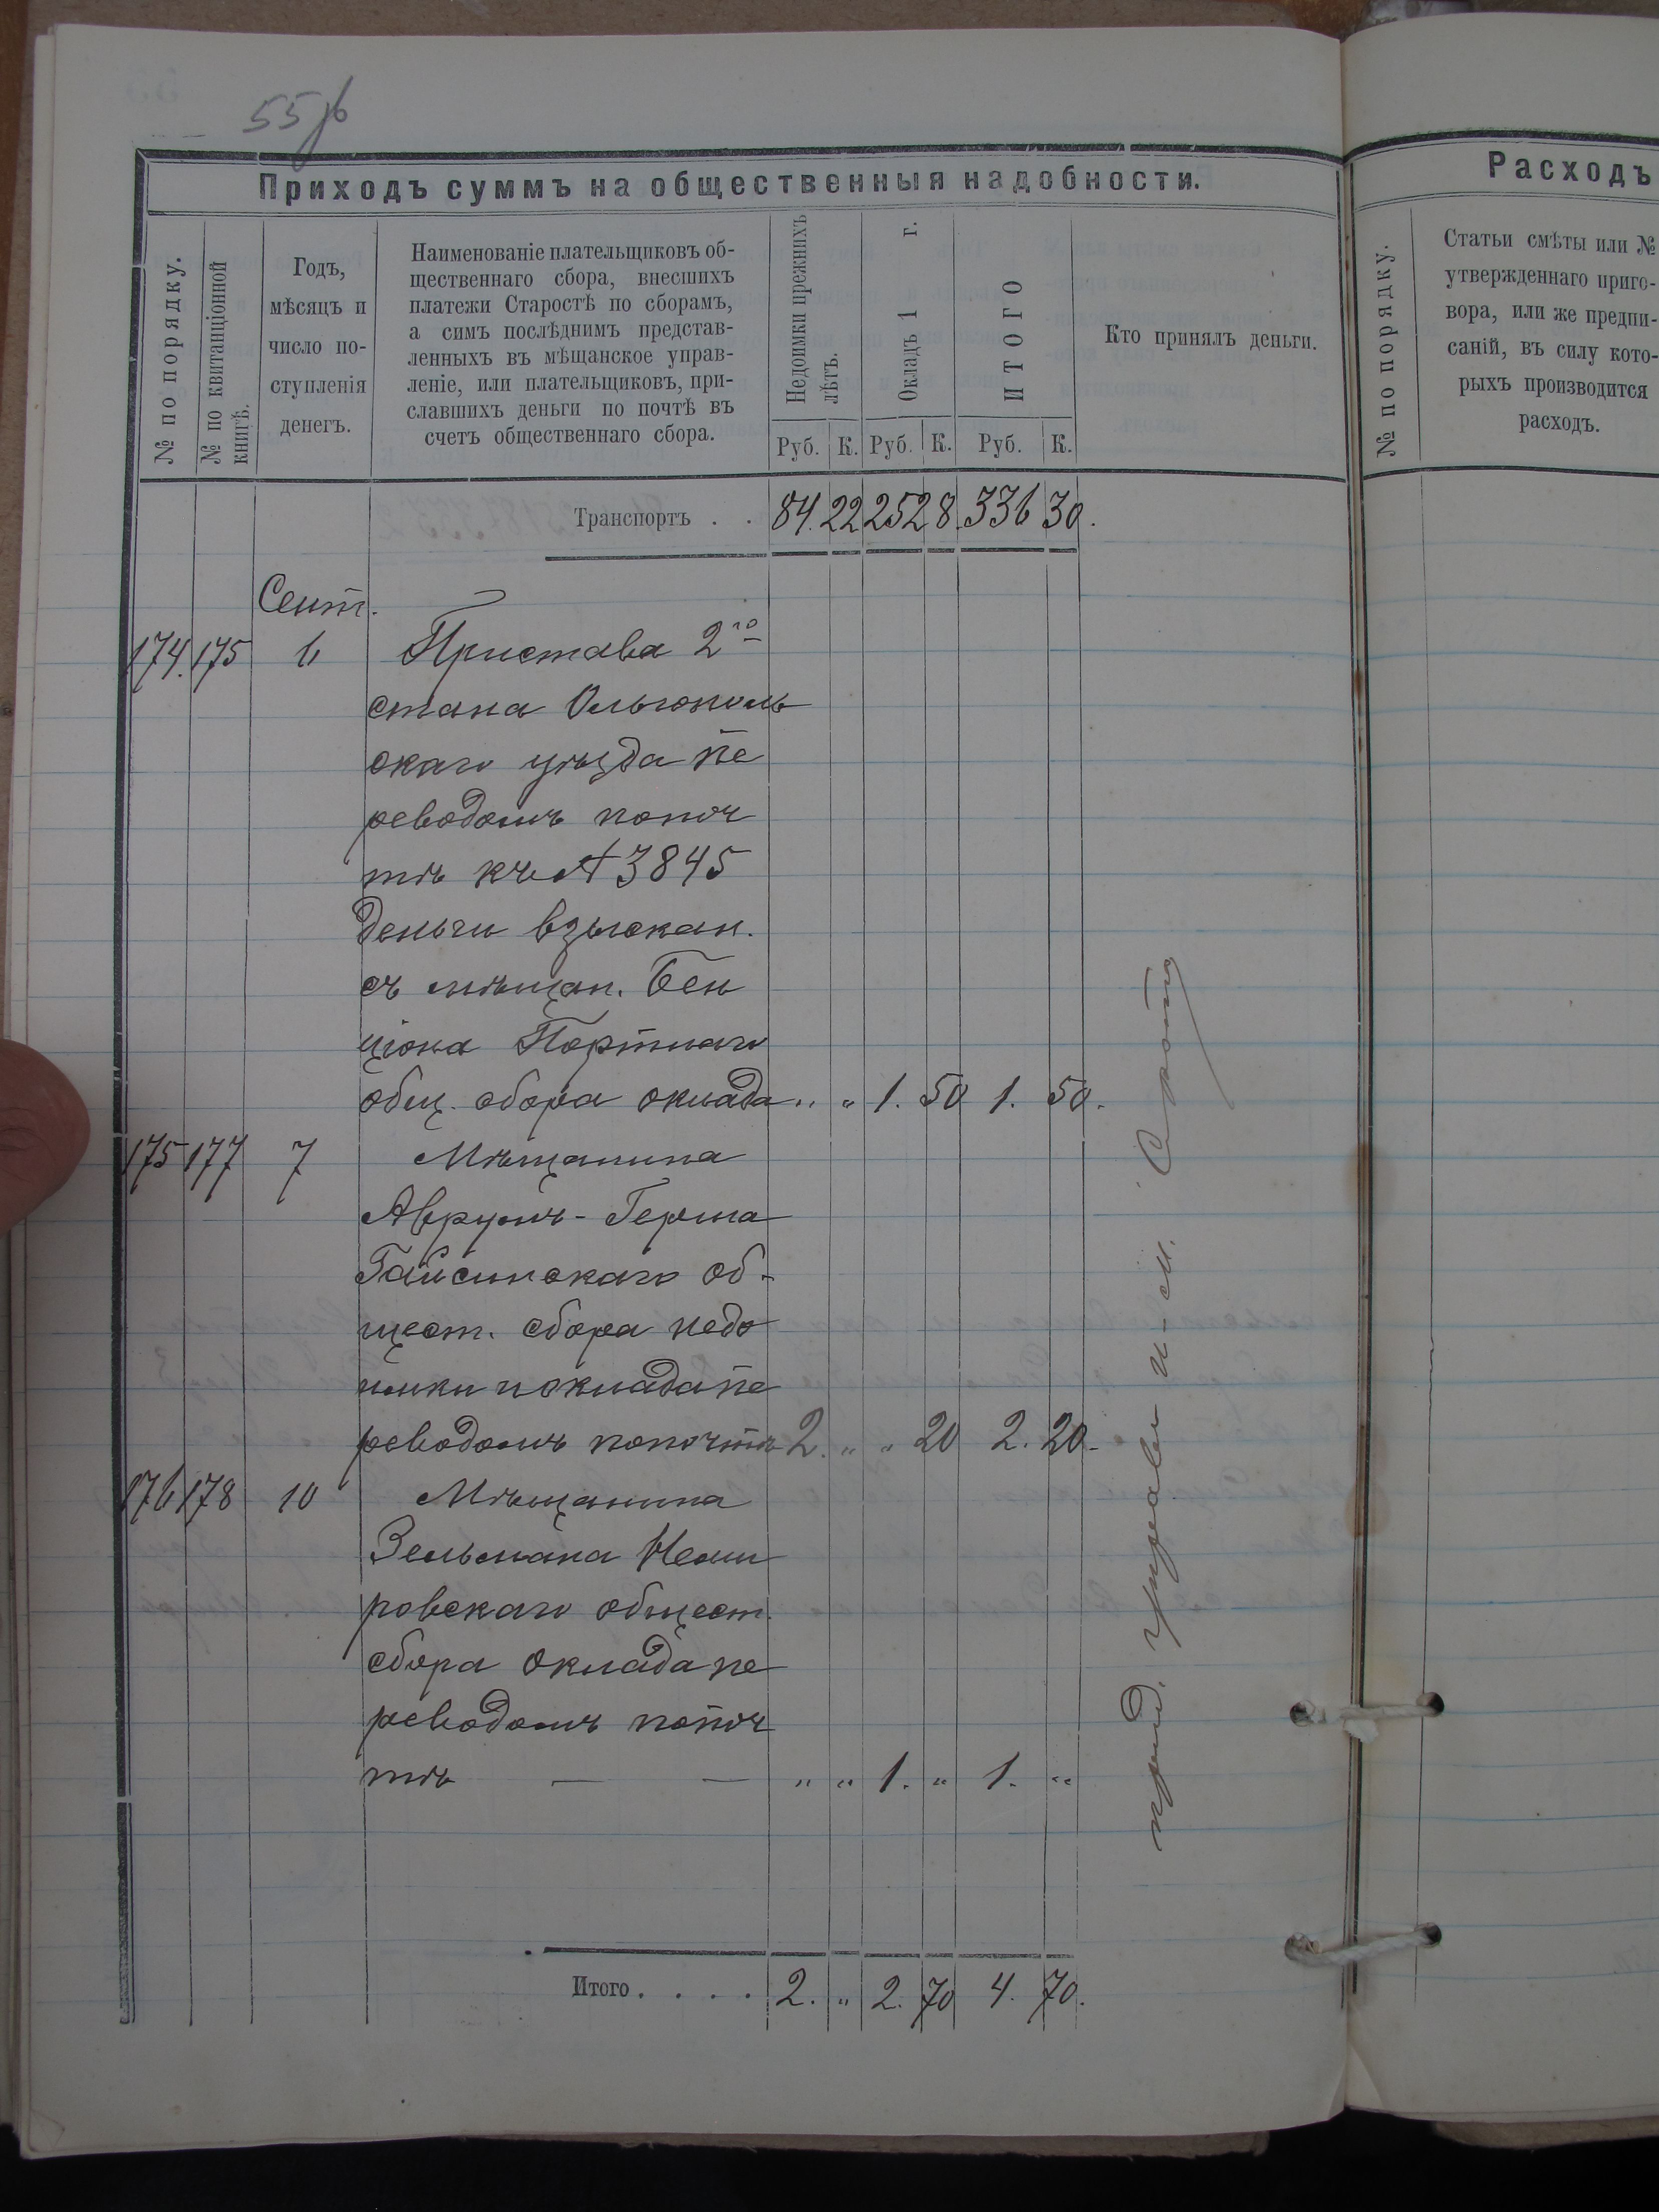 55 об
Приходъ суммъ на общественныя надобности.
№ по порядку.
№ по квитанціонной
книгѣ.
Годъ,
мѣсяцъ и
число по-
ступленія
денегъ.
Наименованіе плательщиковъ об-
щественнаго сбора, внесшихъ
платежи Старостѣ по сборамъ,
а симъ послѣднимъ представ-
ленныхъ въ мѣщанское управ-
леніе, или плательщиковъ, при-
славшихъ деньги по почтѣ въ
счетъ общественнаго сбора.
Недоимки прежнихъ
лѣтъ.
Окладъ 1 г.
ИТОГО
Кто принялъ деньги.
Руб. К. Руб. К. Руб. К.
Транспортъ . . 84. 22 252 8. 336 30.
Сент.
174. 175 6 Пристава 2го
стана Ольгополь
скаго уѣзда пе
реводомъ попоч
тѣ къ № 3845
деньги взыскан.
съ мѣщан. Бен
ціона Портнаго
общ. сбора оклада „ „ 1. 50 1. 50.
175 177 7 Мѣщанина
Аврумъ-Герша
Гайсинскаго об-
щест. сбора недо
имки и оклада пе
реводомъ попочтѣ 2. „ „ 20 2. 20.
176 178 10 Мѣщанина
Зельмана Неми
ровскаго общест.
сбора оклада пе
реводомъ попоч
тѣ — — „ „ 1. „ 1. „
Итого . . . . 2. „ 2. 70 4. 70.
Расходъ
№ по порядку.
Статьи смѣты или №
утвержденнаго приго-
вора, или же предпи-
саній, въ силу кото-
рыхъ производится
расходъ.